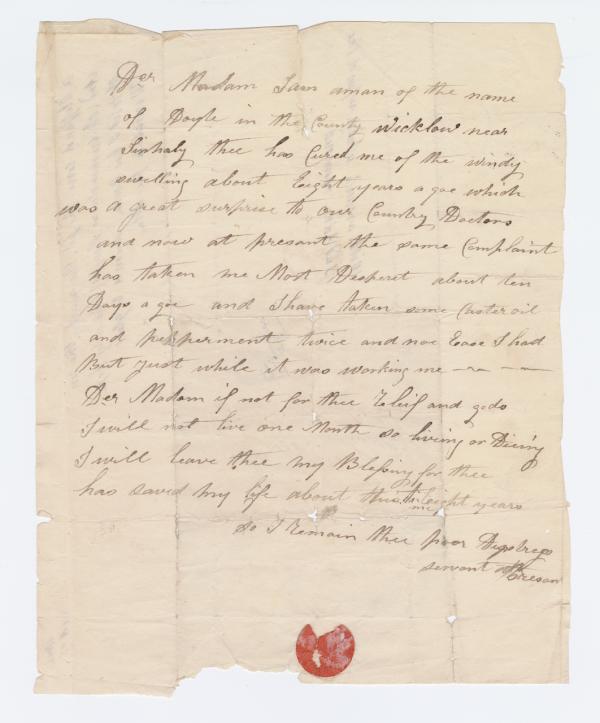 Der Madam I am aman of the name
of Doyle in the County Wicklow near
Tinhaly thee has Cured me of the windy
swelling about Eight years a goe which
was a great surprise to our Country Doctors
and now at presant the same Complaint
has taken me Most Desperet about ten
Days a goe and I have taken some Caster oil
and pepperment twice and noe Ease I had
But Just while it was working me
Der Madam if not for thee Releif and gods
I will not live one Month so living or Dieing
I will leave thee my Blessing for thee
has saved my life about this time eight years
so I Remain thee poor
servant